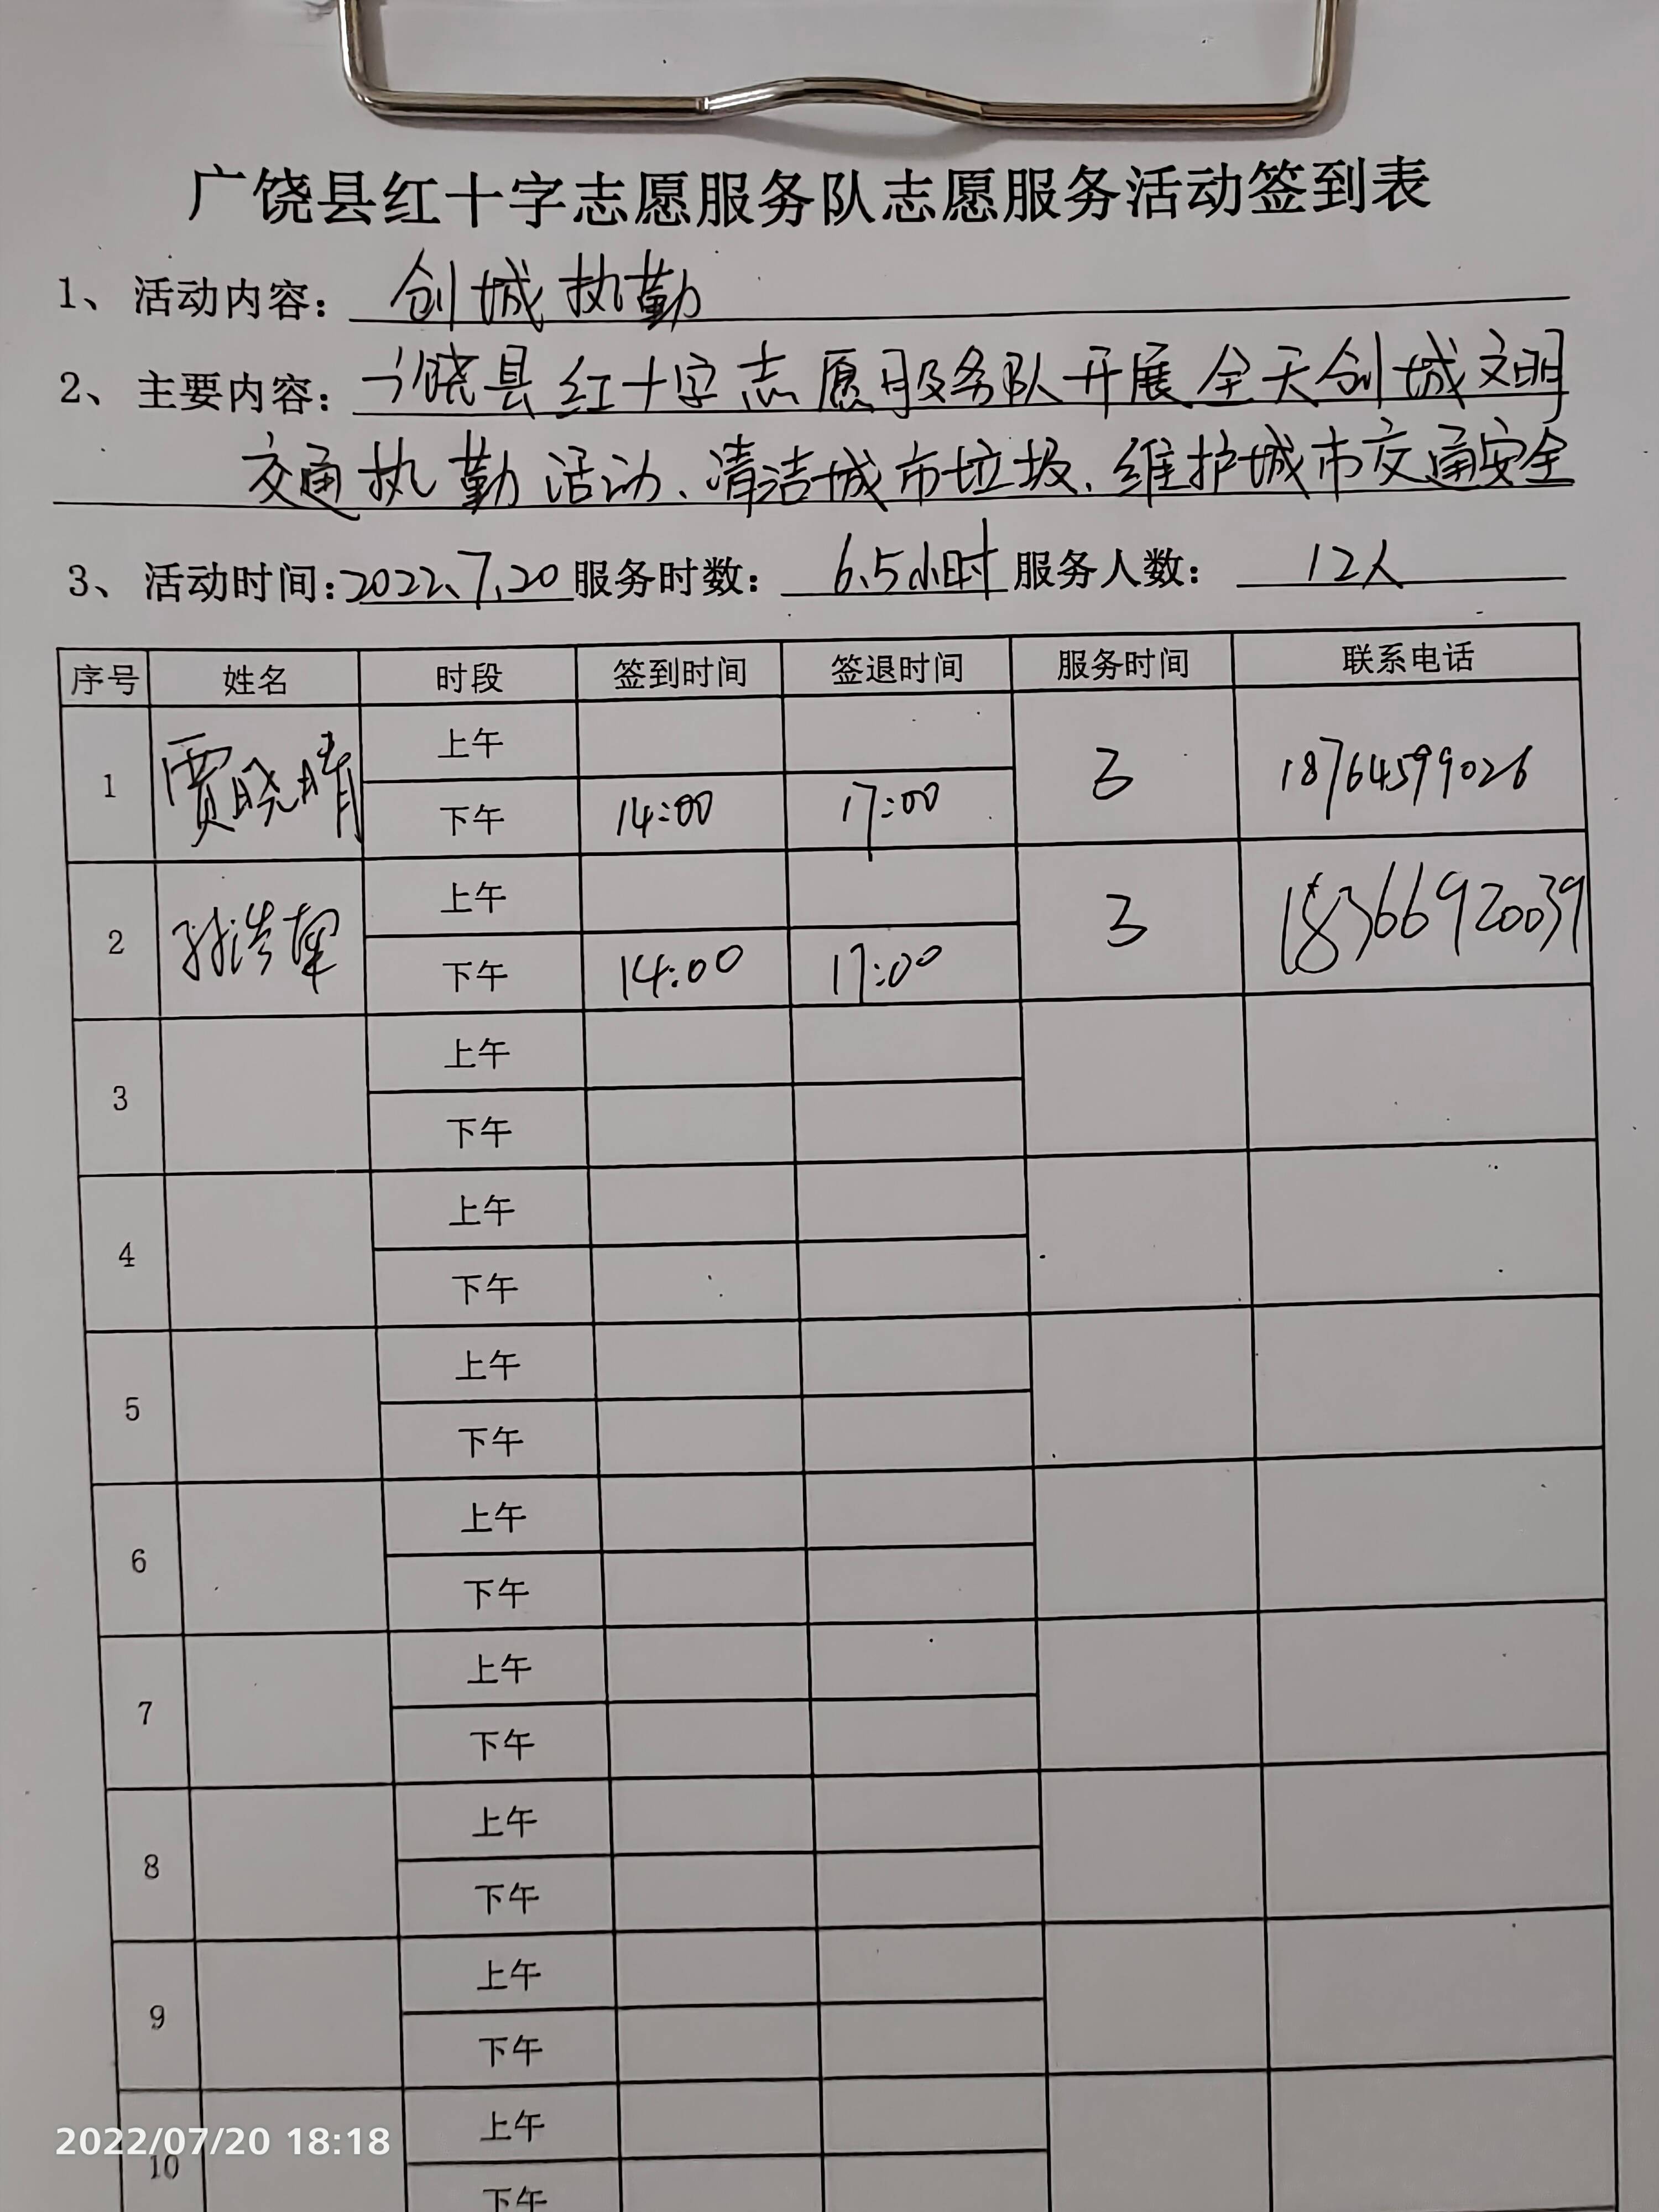 广饶县红十字志愿服务队志愿服务活动签到表
1、活动内容：创城执勤
2、主要内容：广饶县红十字志愿服务队开展全天创城文明
交通执勤活动、清洁城市垃圾、维护城市交通安全
3、活动时间：2022.7.20 服务时数：6.5小时 服务人数：12人
序号 姓名 时段 签到时间 签退时间 服务时间 联系电话
1 贾晓晴 上午 3 18764599026
下午 14:00 17:00
2 孙浩 上午 3 18366920039
下午 14:00 17:00
3 上午
下午
4 上午
下午
5 上午
下午
6 上午
下午
7 上午
下午
8 上午
下午
9 上午
下午
10 上午
下午
2022/07/20 18:18